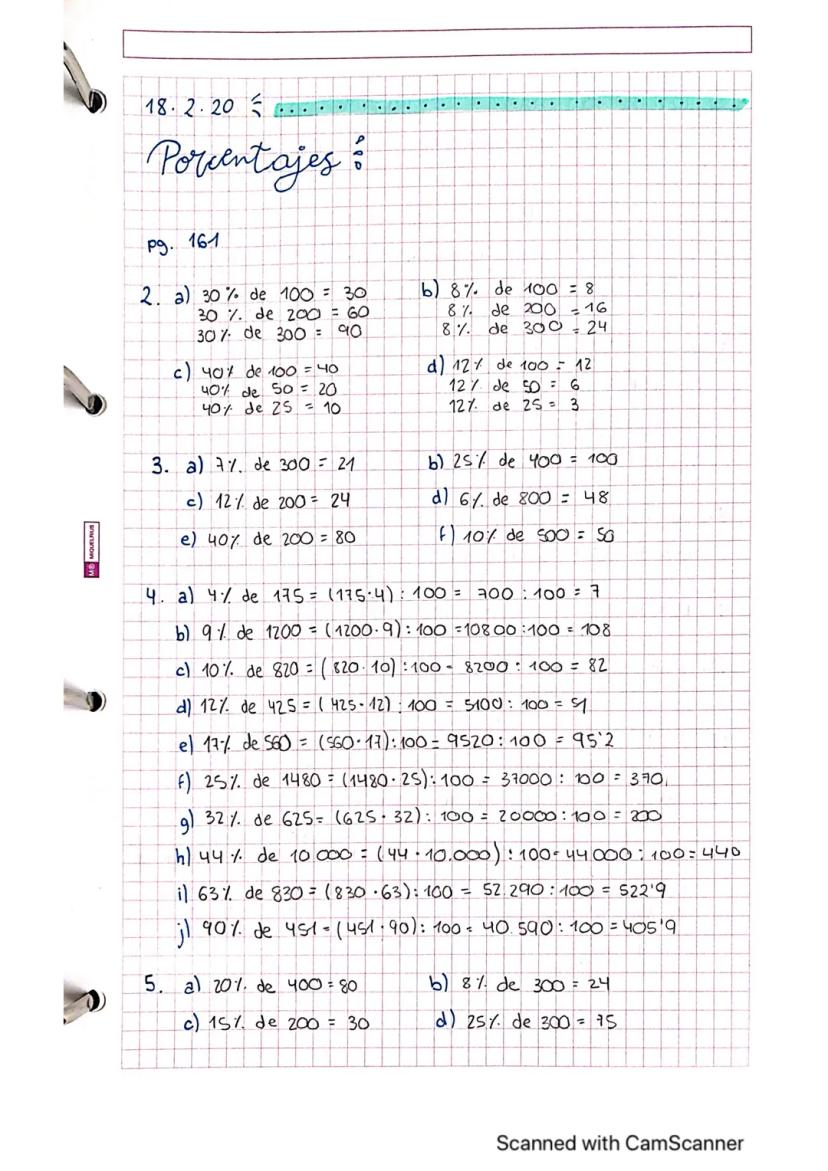 18.2.20
Porcentajes :
pg. 161
2. a) 30% de 100 = 30
30 %. de 200 = 60
30% de 300 = 90
b) 8%. de 100 = 8
8%. de 200 = 16
8%. de 300 = 24
c) 40% de 100 = 40
40% de 50 = 20
40% de 25 = 10
d) 12% de 100 = 12
12% de 50 = 6
12%. de 25 = 3
3. a) 7%. de 300 = 21
b) 25% de 400 = 100
c) 12% de 200 = 24
d) 6% de 800 = 48
e) 40% de 200 = 80
f) 10% de 500 = 50
4. a) 4% de 175 = (175·4) : 100 = 700 : 100 = 7
b) 9% de 1200 = (1200·9) : 100 = 10800 : 100 = 108
c) 10% de 820 = (820·10) : 100 = 8200 : 100 = 82
d) 12% de 425 = (425·12) : 100 = 5100 : 100 = 51
e) 17% de 560 = (560·17) : 100 = 9520 : 100 = 95'2
f) 25% de 1480 = (1480·25) : 100 = 37000 : 100 = 370
g) 32% de 625 = (625·32) : 100 = 20000 : 100 = 200
h) 44% de 10 000 = (44·10.000) : 100 = 44000 : 100 = 440
i) 63% de 830 = (830·63) : 100 = 52.290 : 100 = 522'9
j) 90% de 451 = (451·90) : 100 = 40.590 : 100 = 405'9
5. a) 20% de 400 = 80
b) 8% de 300 = 24
c) 15% de 200 = 30
d) 25% de 300 = 75
MIQUELRIUS
Scanned with CamScanner